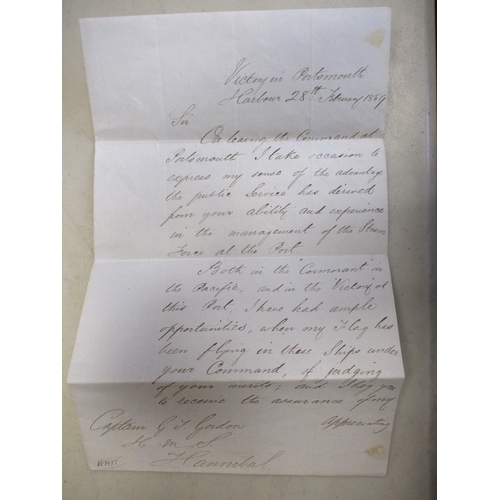 Victory in Portsmouth
Harbour 28th February 1859
Sir
On leaving the Command at
Portsmouth I take occasion to
express my sense of the advantage
the public Service has derived
from your ability and experience
in the management of the Steam
Force at the Port.
Both in the "Cormorant" in
the Pacific, and in the "Victory" at
this Port, I have had ample
opportunities, when my Flag has
been flying in these Ships under
your Command, of judging
of your merits; and I beg you
to receive the assurance of my
appreciating
Captain G T Gordon
H. M. S.
Hannibal